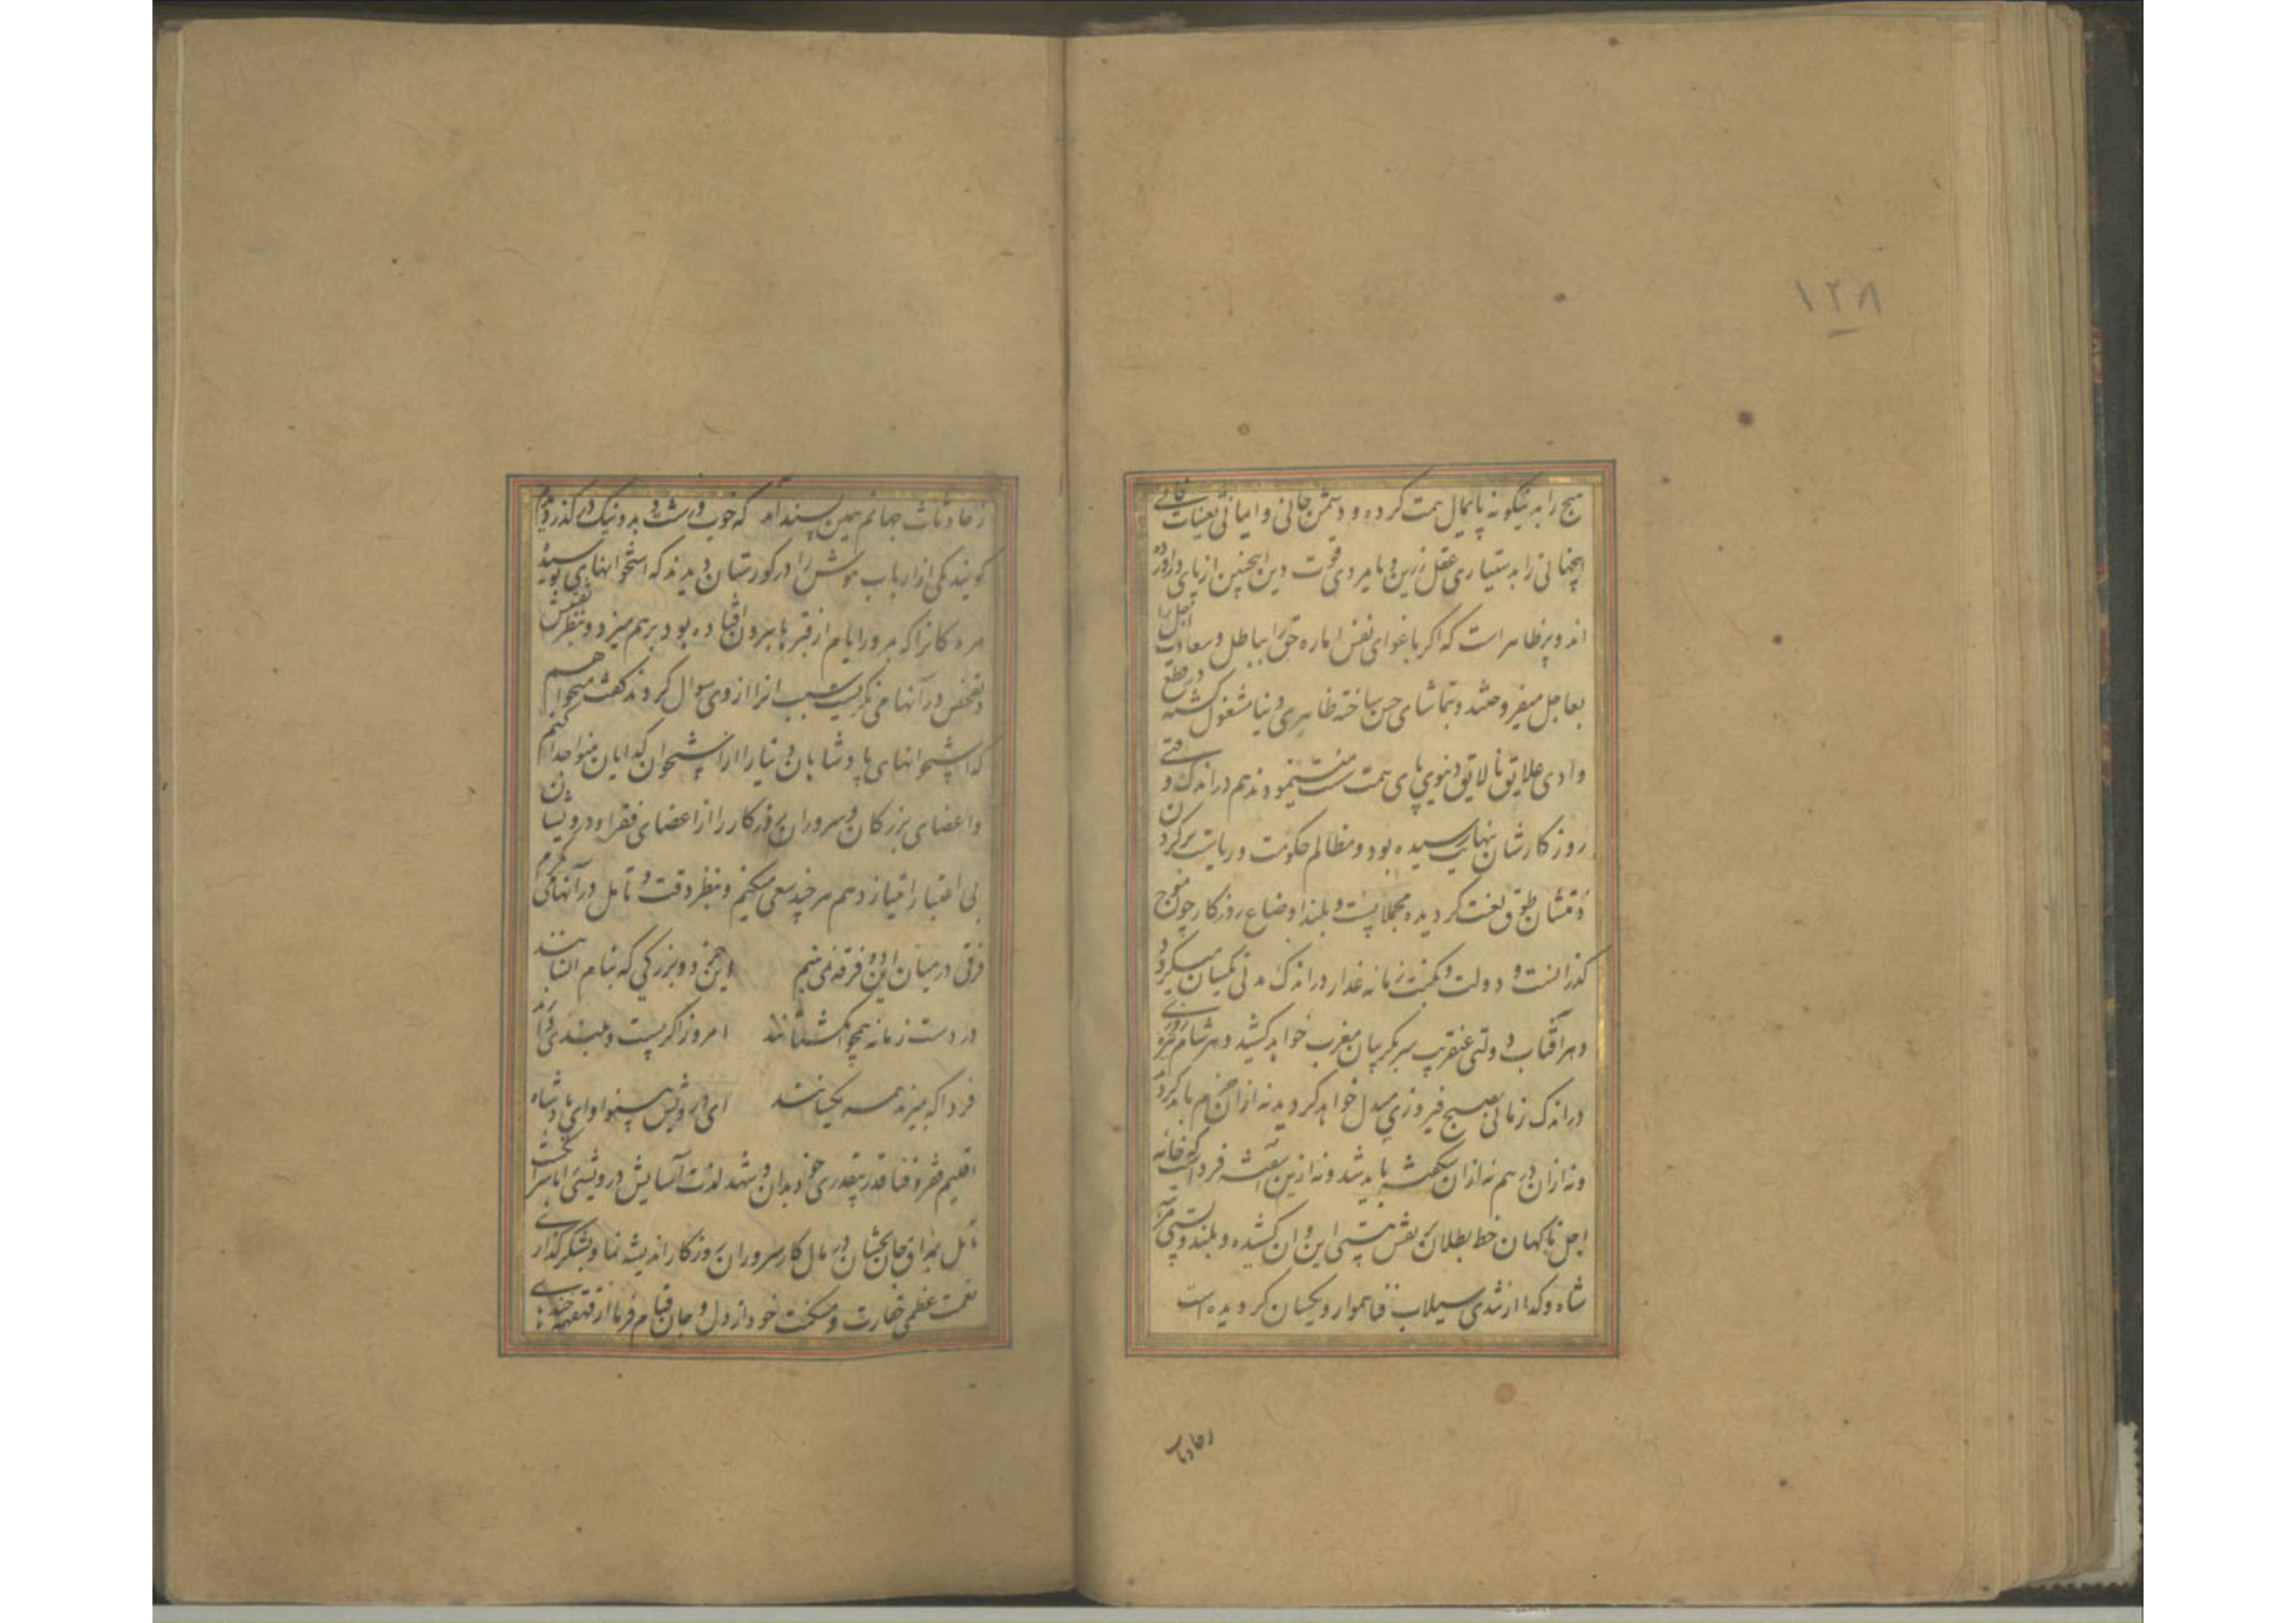 ۱۲۸
هیچ را بدینگونه پایمال همت کرده و دشمن جانی و امانی تعینات فانی
اینچنانی را بدستیاری عقل زرین و پامردی قوت دین اینچنین از پای در آورده
اند و پر ظاهر است که اگر باغوای نفس اماره حق را بباطل و سعادت اجل را
بعاجل میفروختند و بتماشای حسن ساخته ظاهری دنیا مشغول گشته در قطع
وادی علایق نالایق دنیوی پای همت سست مینمودند هم در اندک وقتی
روزگارشان بنهایت رسیده بود و مظالم حکومت و ریاست بر گردن
شان طوق لعنت گردیده مجملا پست و بلند اوضاع روزگار چون موج
گذرانست و دولت و نکبت زمانه غدار در اندک مدتی یکسان میگردد
و هر آفتاب دولتی عنقریب سر بگریبان مغرب خواهد کشید و هر شام تیره روزی
در اندک زمانی بصبح فیروزی مبدل خواهد گردید نه از ان خرم باید گردید
و نه از ان درهم نه از ان شکفته باید شد و نه ازین آشفته فرداست که خانه
اجل ناگهان خط بطلان بر نقش هستی این و ان کشیده و بلند و پستی مرتبه
شاه و گدا از تندی سیلاب فنا هموار و یکسان گردیده است
زحادثات
زحادثات جهانم همین پسند آمد که خوب و زشت و بد و نیک در گذر دیدم
گویند یکی از ارباب هوش را در گورستان دیدند که استخوانهای پوسیده
مردگانرا که بمرور ایام از قبرها بیرون افتاده بود بر هم میزد و بنظر تفتیش
و تفحص در آنها می نگریست سبب انرا از وی سوال کردند گفت میخواهم
که استخوانهای پادشاهان دنیا را از استخوان گدایان بینوا جدا کنم
و اعضای بزرگان و سروران روزگار را از اعضای فقرا و درویشان
بی اعتبار امتیاز دهم هر چند سعی میکنم و بنظر دقت و تامل در آنها می نگرم
فرقی در میان این دو فرقه نمی بینم این خرد و بزرگی که بنام انسانند
در دست زمانه همچو انگشتانند امروز اگر پست و بلندی دارند
فردا که بمیرند همه یکسانند ای درویش بینوا و ای پادشاه
اقلیم فقر و فنا قدر بیقدری خود بدان و شهد لذت آسایش درویشی را
بمذاق جان بچشان در مال کار سروران روزگار اندیشه نما و بشکر گذاری
نعمت عظمی حقارت و مسکنت خود از دل و جان قیام فرما از قهقهه خنده